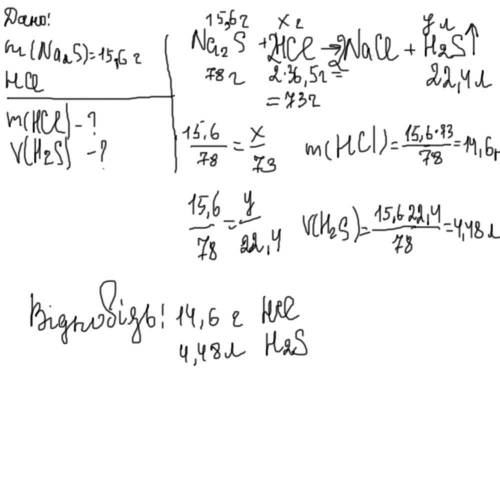 Дано:
m(Na2S)=15,6 г
HCl
m(HCl)-?
V(H2S)-?
15,6г x г y л
Na2S + 2HCl → 2NaCl + H2S↑
78г 2·36,5г= 22,4л
=73г
15,6/78 = x/73 m(HCl)=15,6·73/78=14,6г
15,6/78 = y/22,4 V(H2S)=15,6 22,4/78=4,48л
Відповідь: 14,6 г HCl
4,48л H2S